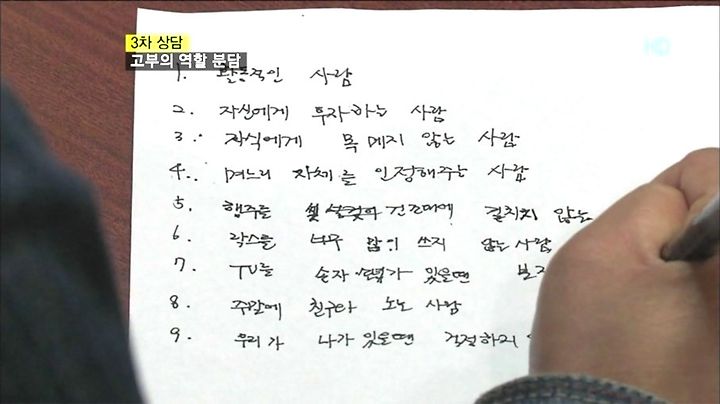 3차 상담
고부의 역할 분담
HD
1. 활동적인 사람
2. 자신에게 투자하는 사람
3. 자식에게 목메지 않는 사람
4. 며느리 자체를 인정해주는 사람
5. 행주를 건조대에 걸치지 않는
6. 락스를 너무 많이 쓰지 않는 사람
7. TV는 손자 손녀가 있을땐 보지
8. 주말에 친구랑 노는 사람
9. 우리가 나가 있을땐 걱정하지